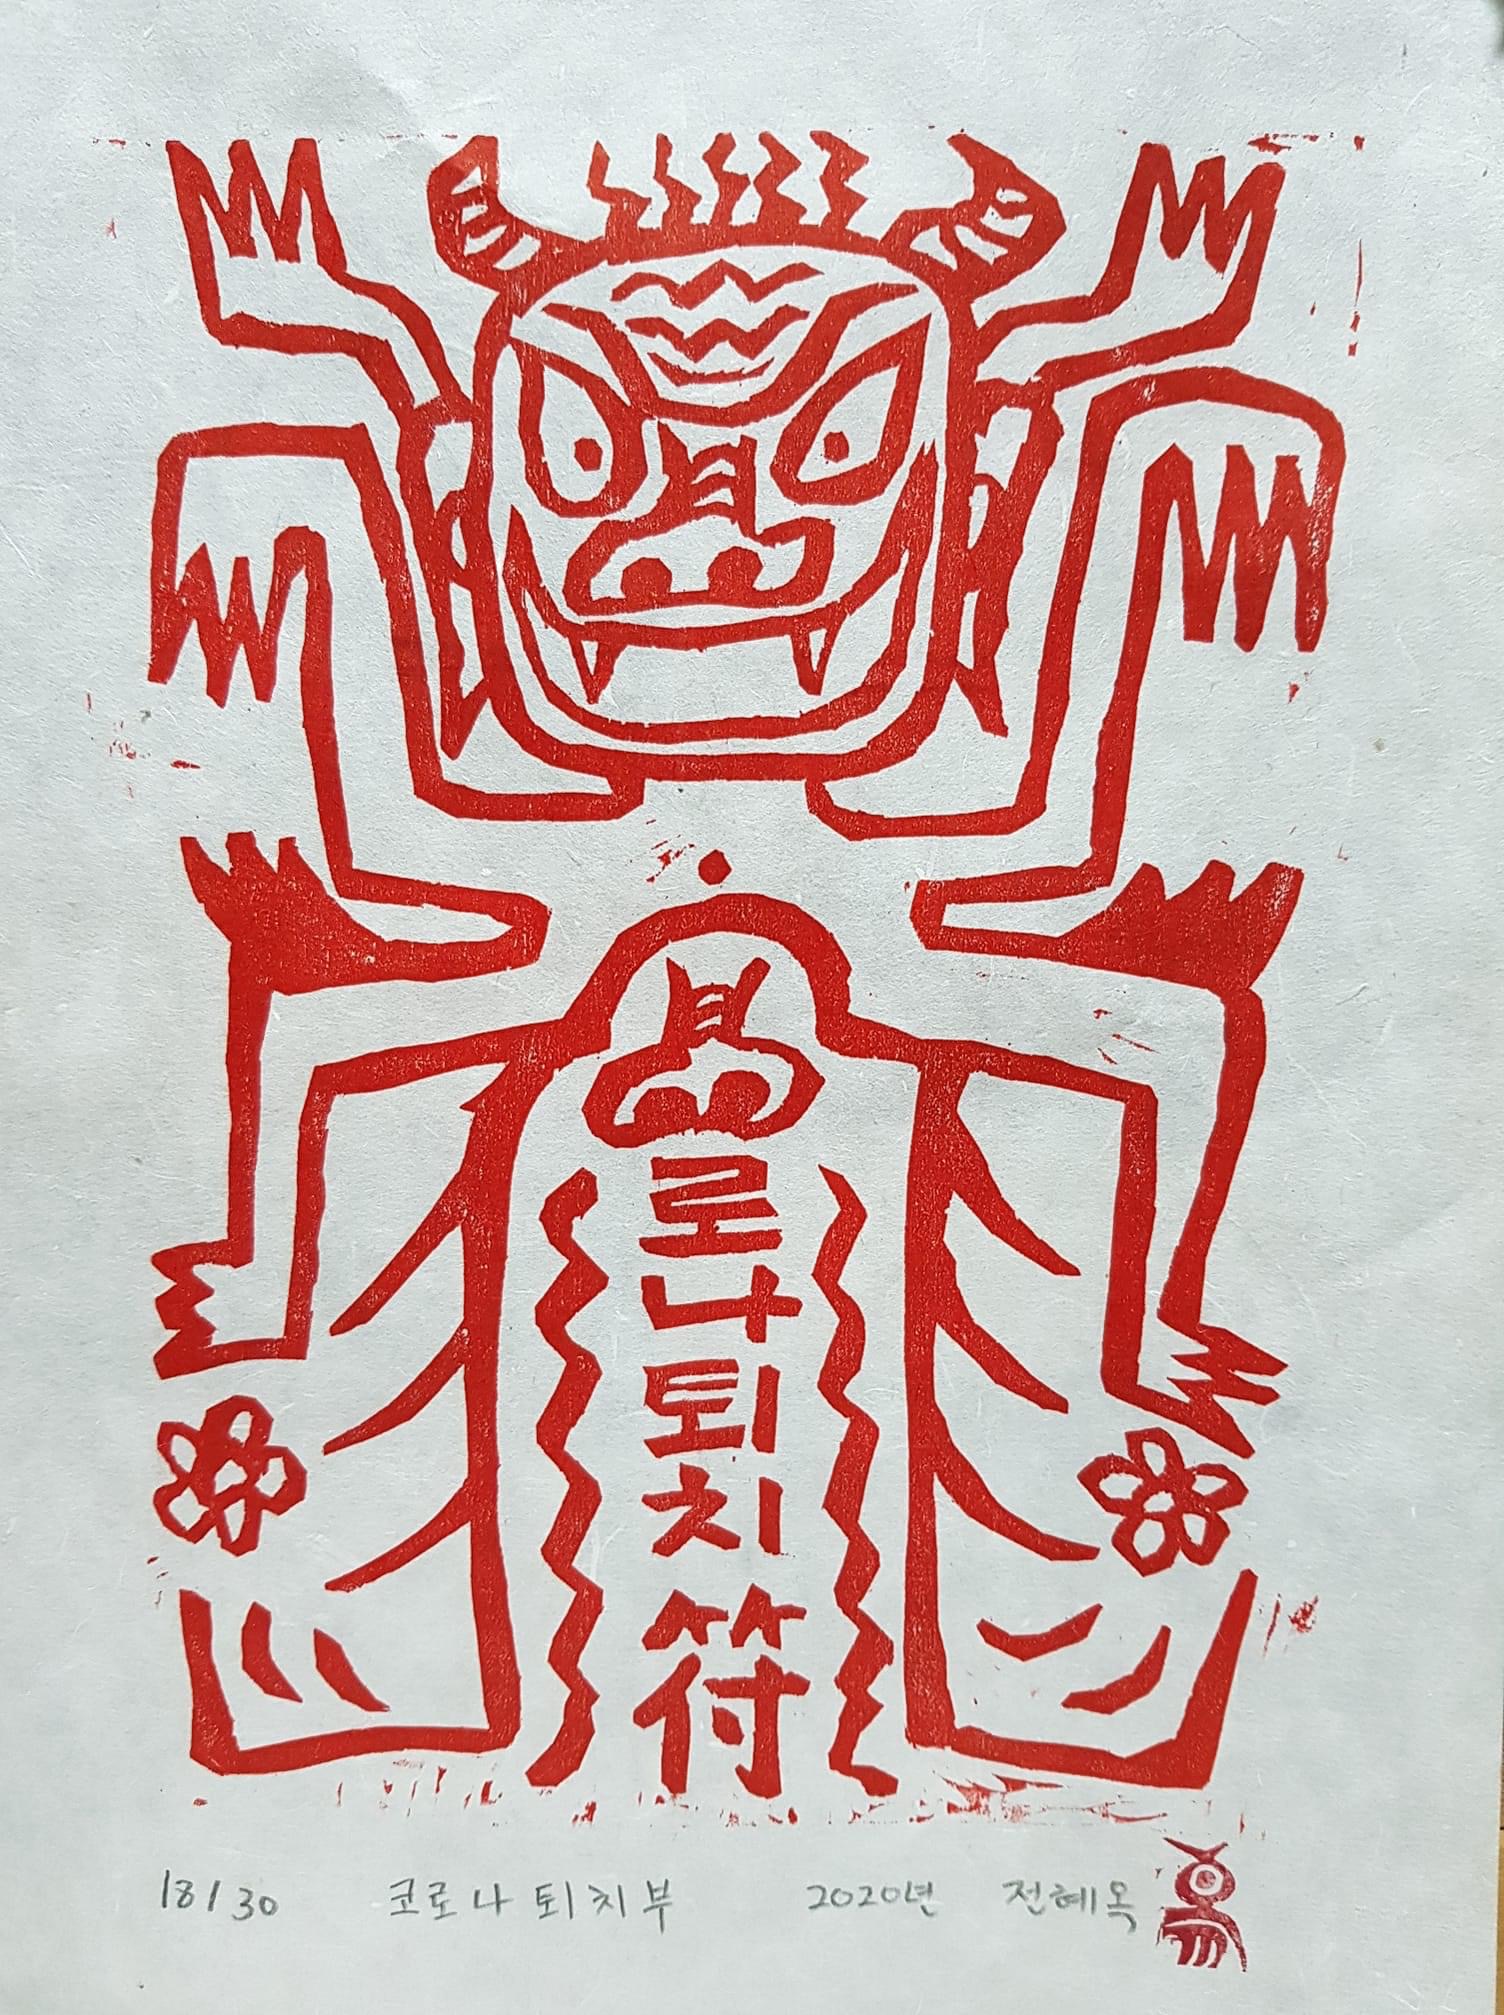 로
나
퇴
치
符
18/30 코로나퇴치부 2020년 전혜옥